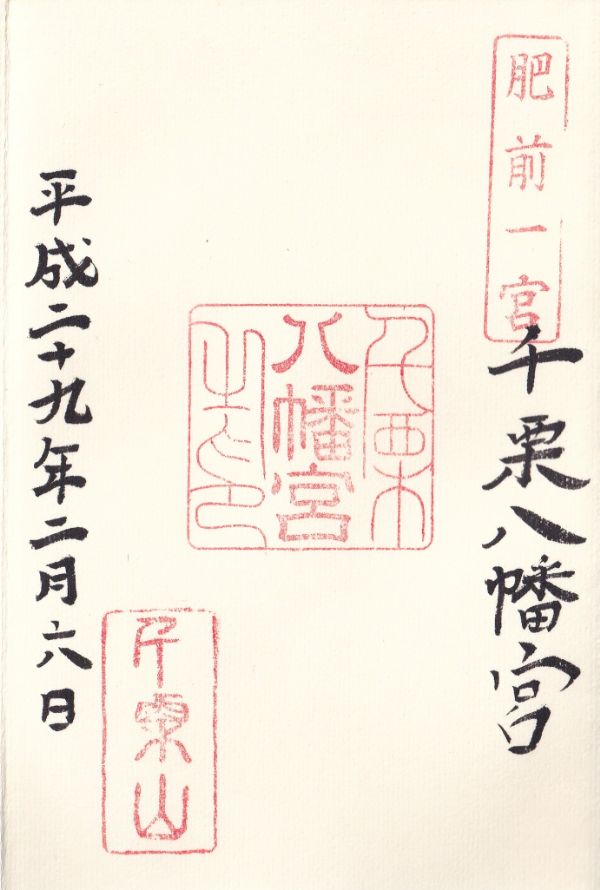 肥前一宮
千栗八幡宮
千栗
八幡宮
之印
千栗山
平成二十九年二月六日